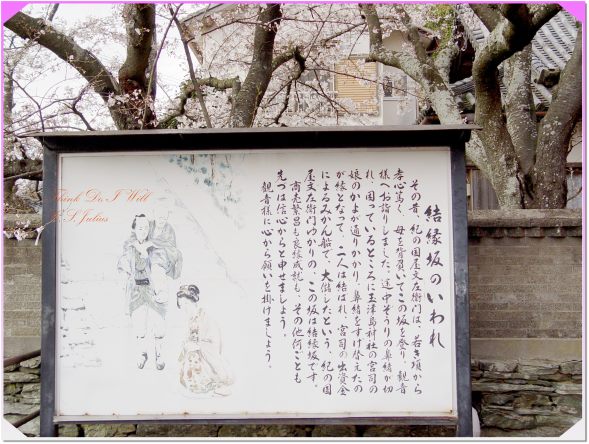 結縁坂のいわれ
その昔、紀の国屋文左衛門は、若き頃から
孝心篤く、母を背負いてこの坂を登り、観音
様へお詣りしました。途中そうりの鼻緒が切
れ、困っているところに玉津島神社の宮司の
娘のかよが通りかかり、鼻緒をすげ替えたの
が縁となって、二人は結ばれ、宮司の出資金
によるみかん船で、大儲したという、紀の国
屋文左衛門ゆかりの、この坂は結縁坂です。
商売繁昌も良縁成就も、その他何ごとも
先づは信心からと申せましょう。
観音様に心から願いを掛けましょう。
Think Do I Will
S.Julius